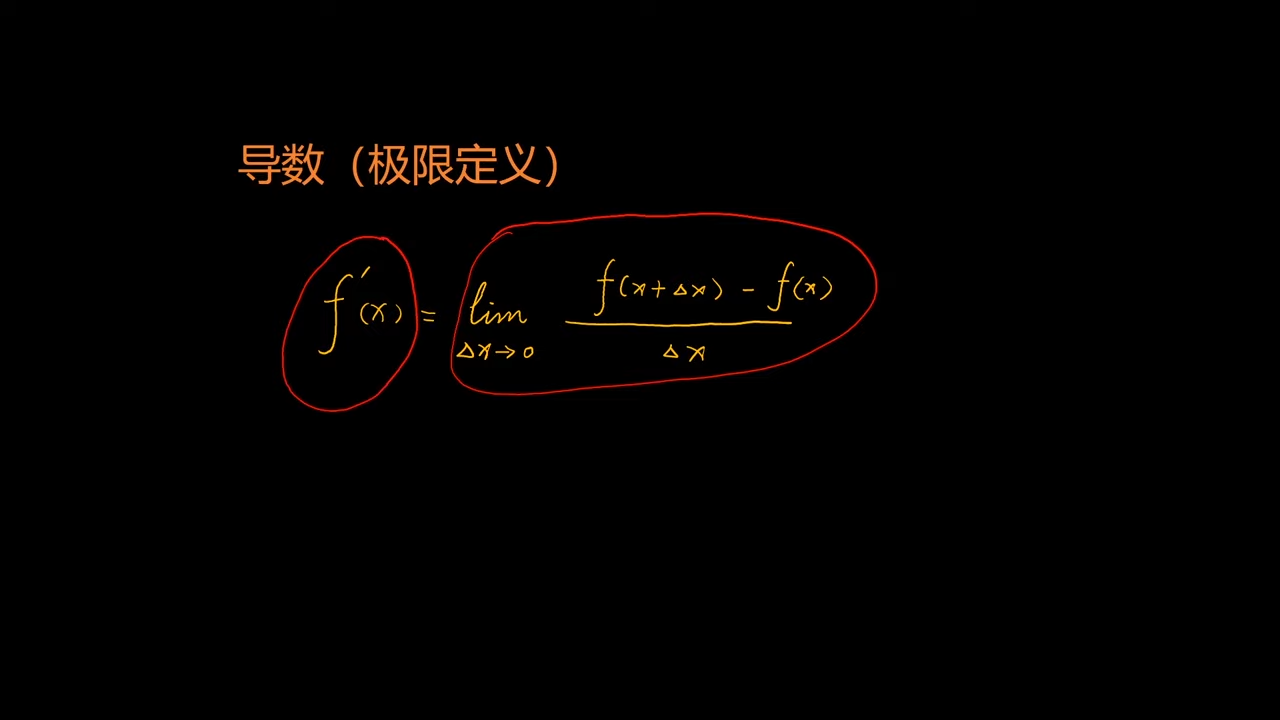 导数（极限定义）
f'(x) = lim Δx→0 f(x+Δx) - f(x) / Δx